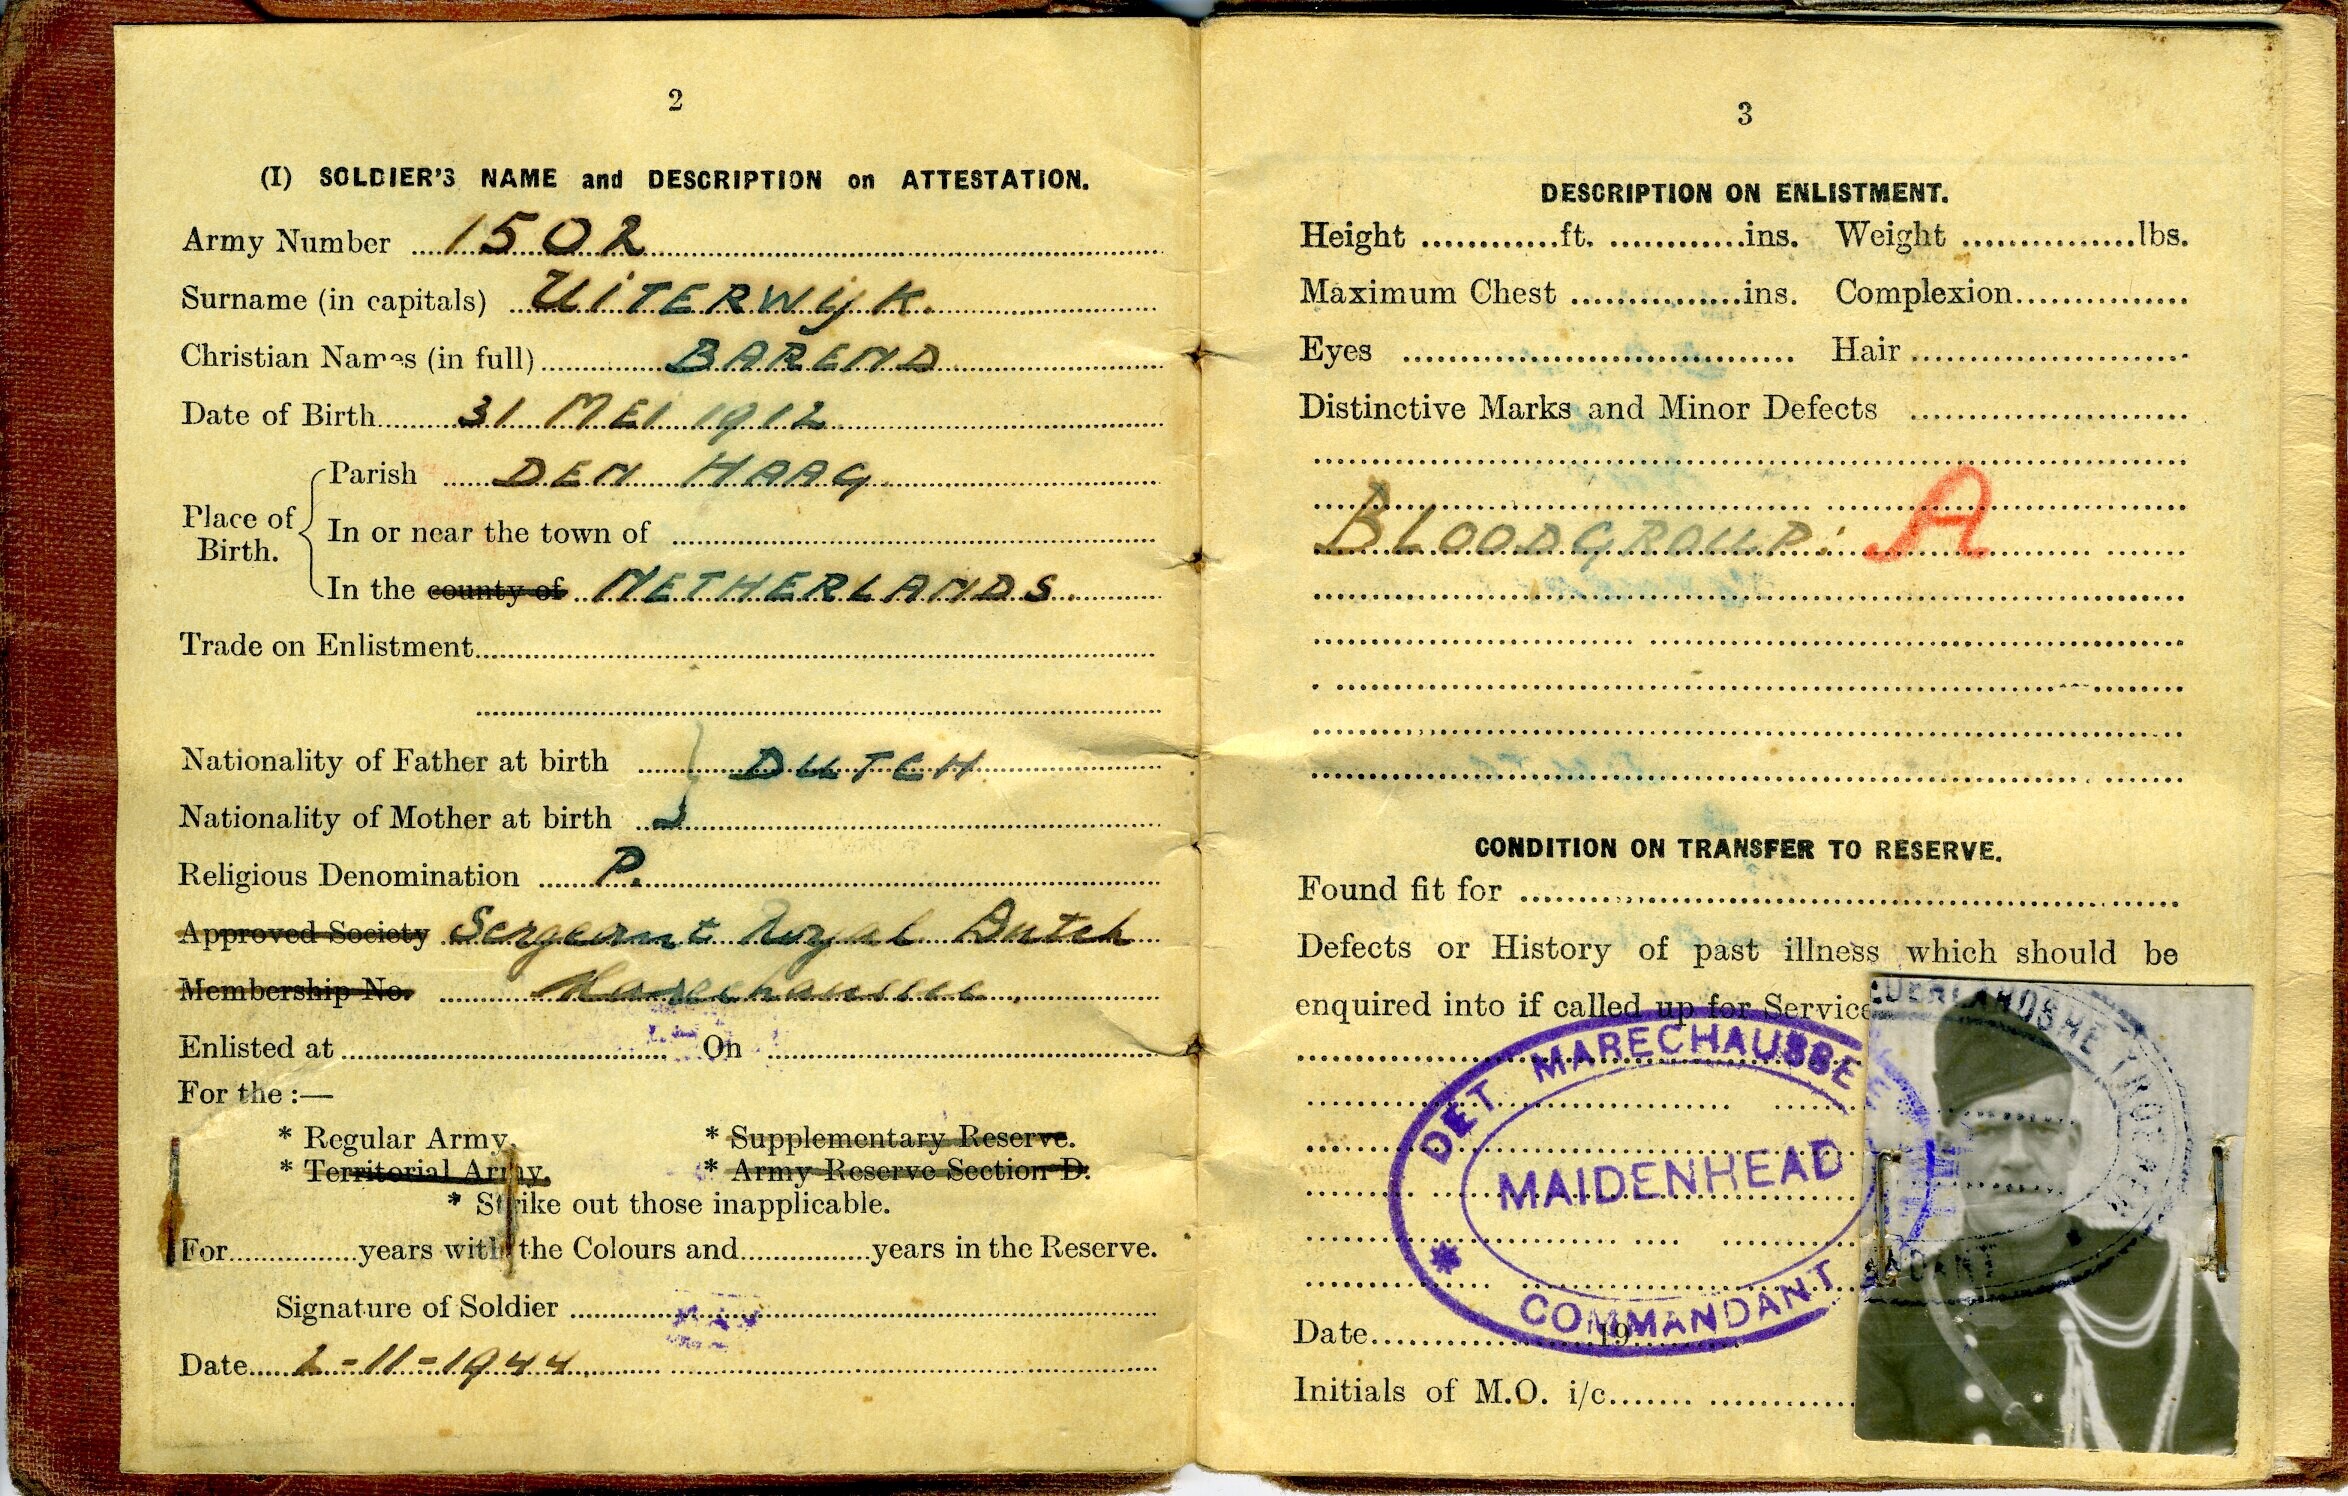 2
(I) SOLDIER'S NAME and DESCRIPTION on ATTESTATION.
Army Number 1502
Surname (in capitals) UiTERWijK.
Christian Names (in full) BAREND
Date of Birth 31 MEI 1912
Place of Birth.
Parish DEN HAAG
In or near the town of
In the county of NETHERLANDS.
Trade on Enlistment
Nationality of Father at birth DUTCH
Nationality of Mother at birth
Religious Denomination P.
Approved Society Sergeant Royal Dutch
Membership No. Marechaussee.
Enlisted at On
For the :—
* Regular Army. * Supplementary Reserve.
* Territorial Army. * Army Reserve Section D.
* Strike out those inapplicable.
For years with the Colours and years in the Reserve.
Signature of Soldier
Date 1-11-1944
3
DESCRIPTION ON ENLISTMENT.
Height ft. ins. Weight lbs.
Maximum Chest ins. Complexion
Eyes Hair
Distinctive Marks and Minor Defects
BLOODGROUP: A
CONDITION ON TRANSFER TO RESERVE.
Found fit for
Defects or History of past illness which should be
enquired into if called up for Service
DET MARECHAUSSEE
MAIDENHEAD
* COMMANDANT
DERLANDSHE TROEPEN
DANT
Date 19
Initials of M.O. i/c